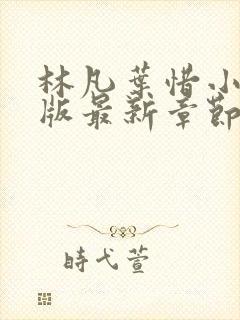 林凡葉惜小
版最新章節
時弋萱